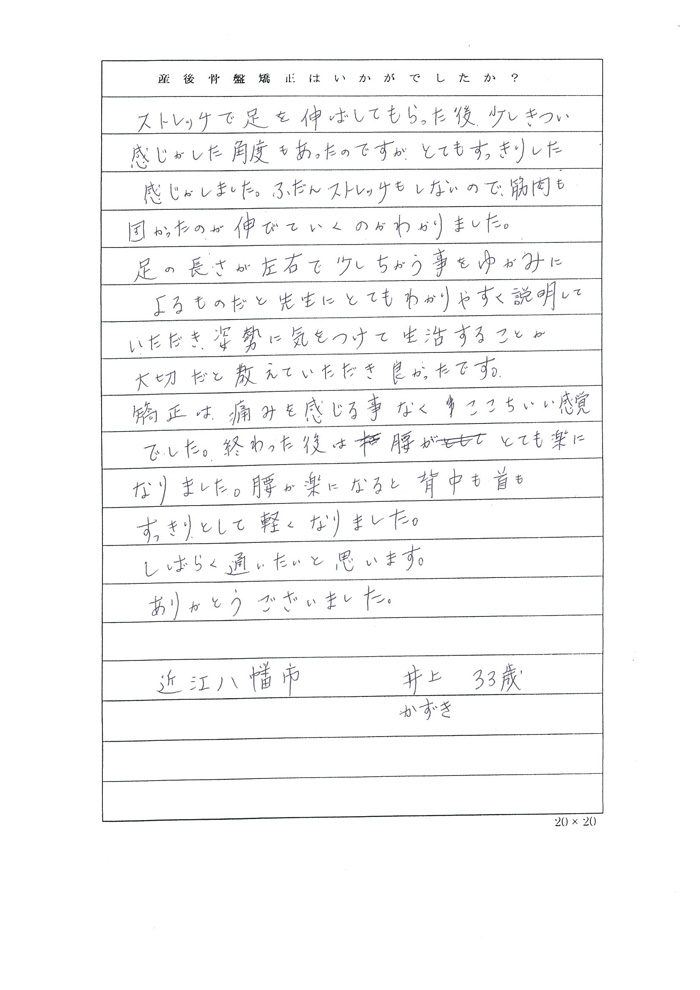 産後骨盤矯正はいかがでしたか？
ストレッチで足を伸ばしてもらった後、少しきつい
感じがした角度もあったのですが、とてもすっきりした
感じがしました。ふだんストレッチもしないので、筋肉も
固かったのが伸びていくのがわかりました。
足の長さが左右で少しちがう事をゆがみに
よるものだと先生にとてもわかりやすく説明して
いただき、姿勢に気をつけて生活することが
大切だと教えていただき良かったです。
矯正は、痛みを感じる事なくここちいい感覚
でした。終わった後は腰がとても楽に
なりました。腰が楽になると背中も首も
すっきりとして軽くなりました。
しばらく通いたいと思います。
ありがとうございました。
近江八幡市 井上 33歳
かずき
20×20